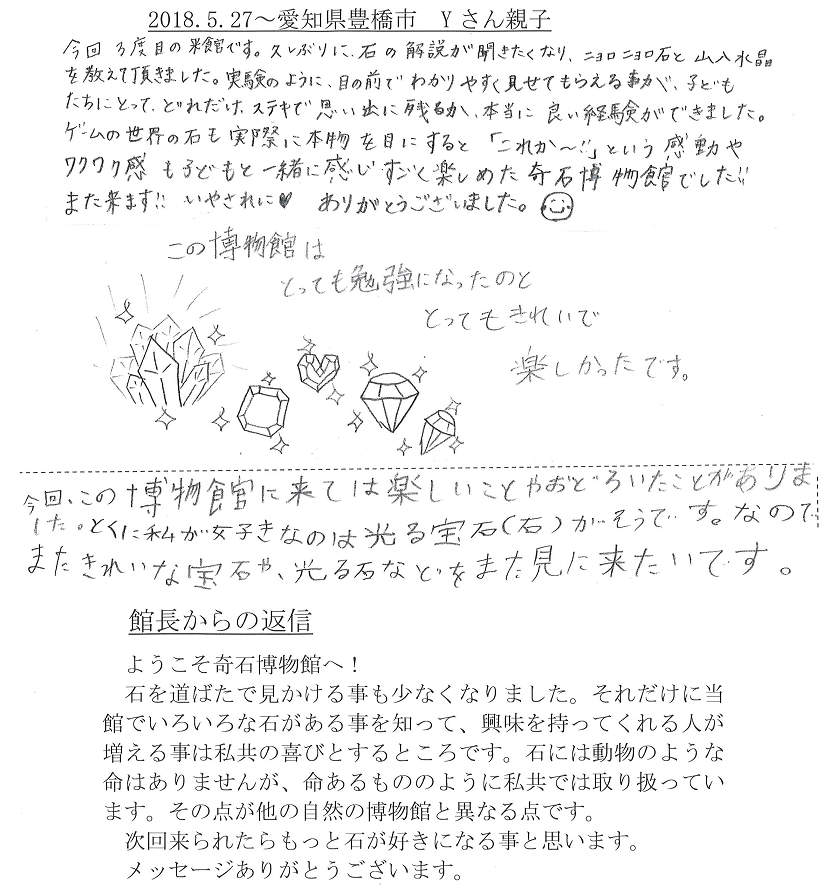 2018.5.27～愛知県豊橋市　Yさん親子
今回3度目の来館です。久しぶりに、石の解説が聞きたくなり、ニョロニョロ石と山入水晶
を教えて頂きました。実験のように、目の前でわかりやすく見せてもらえる事が、子ども
たちにとって、どれだけ、ステキで思い出に残るか、本当に良い経験ができました。
ゲームの世界の石も実際に本物を目にすると「これか〜!!」という感動や
ワクワク感も子どもと一緒に感じすごく楽しめた奇石博物館でした!!
また来ます!! いやされに♥　ありがとうございました。
この博物館は
とっても勉強になったのと
とってもきれいで
楽しかったです。
今回、この博物館に来ては楽しいことやおどろいたことがありま
した。とくに私が好きなのは光る宝石(石)がそうです。なので
またきれいな宝石や、光る石などをまた見に来たいです。
館長からの返信
ようこそ奇石博物館へ！
石を道ばたで見かける事も少なくなりました。それだけに当
館でいろいろな石がある事を知って、興味を持ってくれる人が
増える事は私共の喜びとするところです。石には動物のような
命はありませんが、命あるもののように私共では取り扱ってい
ます。その点が他の自然の博物館と異なる点です。
次回来られたらもっと石が好きになる事と思います。
メッセージありがとうございます。